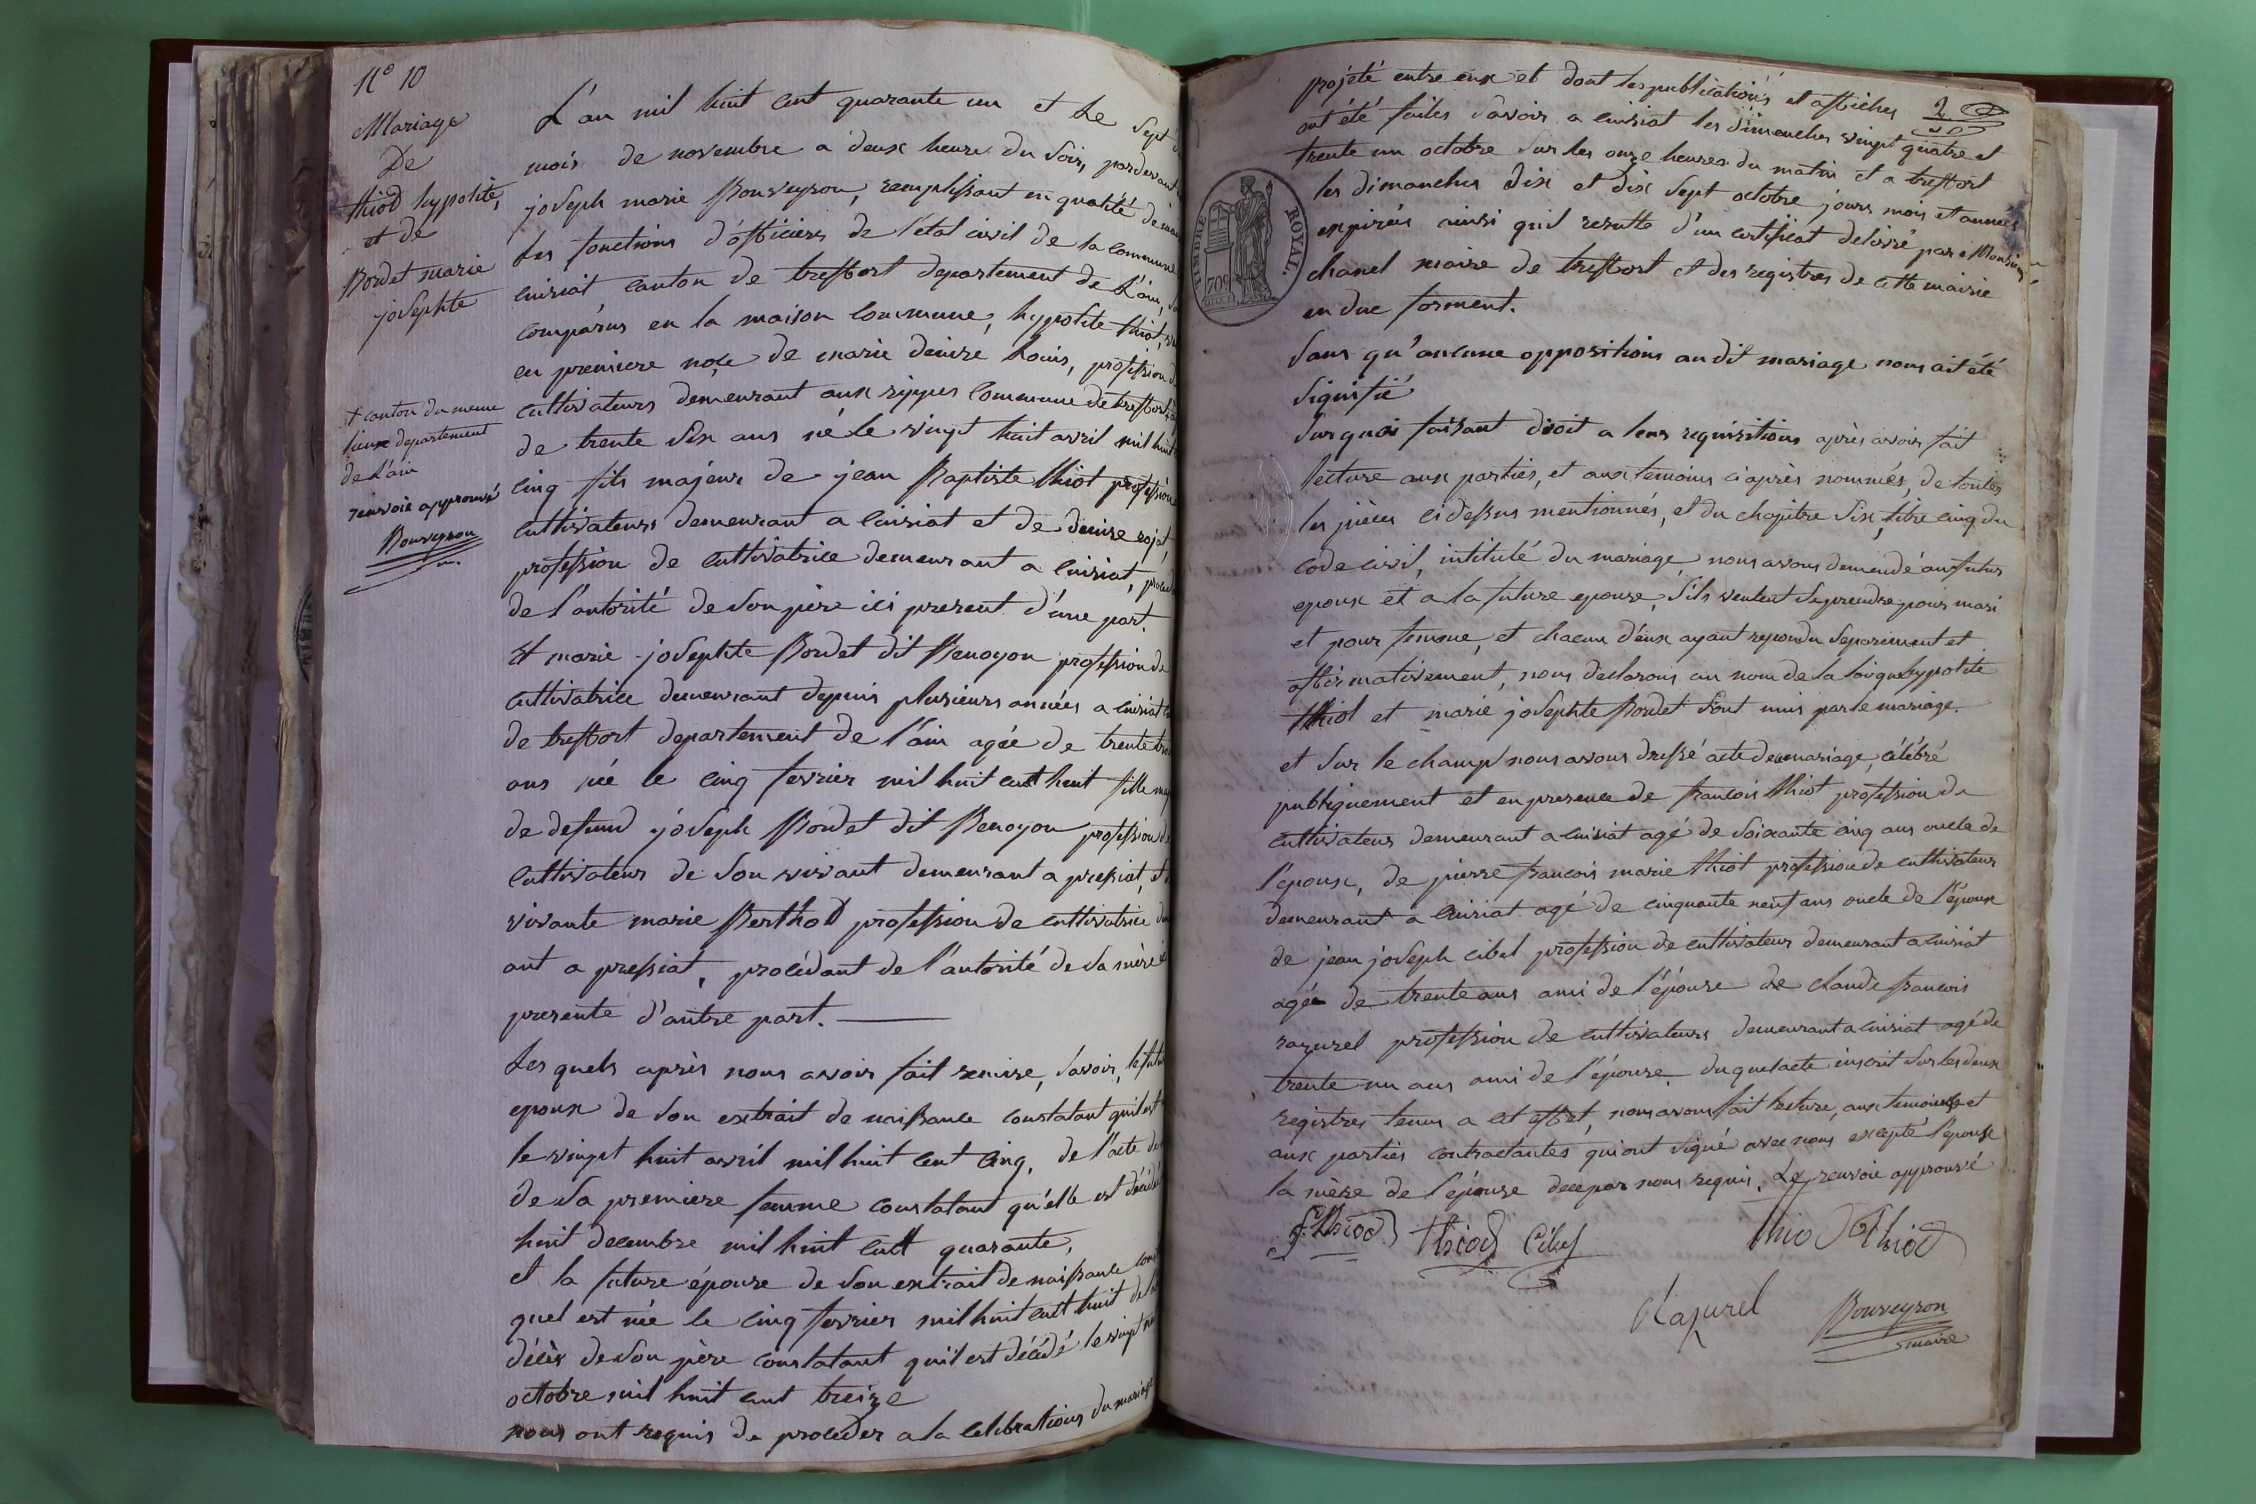 N° 10
Mariage
De
thiod hypolite,
et de
Bordet marie
josephte
+ canton du meme
lieux departement
de l'ain
renvoie approuvé
Bouveyron
L'an mil huit cent quarante un et le sept d
mois de novembre a deux heure du soir, pardevant
joseph marie Bouveyron, remplissant en qualité de mai
les fonctions d'officiers de l'état civil de la commune
cuisiat, canton de treffort departement de l'ain, 
comparus en la maison commune, hypolite thiot, 
en premiere noçe de marie denise Louis, profession d
cultivateurs demeurant aux rippes commune de treffort +
de trente six ans né le vingt huit avril mil huit
cinq fils majeur de jean Baptiste thiot profession
cultivateurs demeurant a Cuisiat et de denise rojat
profession de cultivatrice demeurant a Cuisiat, proced
de l'autorité de son père ici present d'une part.
Et marie josephte Bordet dit Benoyon profession de
cultivatrice demeurant depuis plusieurs années a cuisiat
de treffort departement de l'ain agée de trente trois
ans née le cinq fevrier mil huit cent huit fille maj
de defund joseph Bordet dit Benoyon profession de
cultivateur de son vivant demeurant a pressiat, et
vivante marie Berthod profession de cultivatrice dem
ant a pressiat, procédant de l'autorité de sa mère ici
presente d'autre part.
Les quels après nous avoir fait remise, savoir, le futur
epoux de son extrait de naissance constatant qu'il est
le vingt huit avril mil huit cent cinq, de l'acte de
de sa premiere femme constatant qu'elle est décédée
huit decembre mil huit cent quarante,
et la future épouse de son extrait de naissance cons
quel est née le cinq fevrier mil huit cent huit de l'
décès de son père constatant qu'il est décédé le vingt
octobre mil huit cent treize
nous ont requis de proceder a la celebrations du mariage
projeté entre eux et dont les publications et affiches
2
ont été faites savoir a cuisiat les dimanches vingt quatre et
trente un octobre sur les onze heures du matin et a treffort
les dimanches dix et dix sept octobre jours mois et années
expirées ainsi qu'il resulte d'un certificat delivré par Monsieur
chanel maire de treffort et des registres de cette mairie
en due forment.
TIMBRE ROYAL.
Sans qu'aucune oppositions au dit mariage nous ait été
signifié
Sur quoi faisant droit a leurs requisitions après avoir fait
lecture aux parties, et aux temoins ci après nommés, de toutes
les pièces ci dessus mentionnés, et du chapitre six, titre cinq du
code civil, intitulé du mariage, nous avons demendé au futur
epoux et a la future epouse, s'ils veulent se prendre pour mari
et pour femme, et chacun d'eux ayant repondu separement et
affirmativement, nous declarons au nom de la loi que hypolite
thiot et marie josephte Bordet sont unis par le mariage.
et sur le champ nous avons dressé acte de ce mariage, célébré
publiquement et en presence de francois thiot profession de
cultivateur demeurant a cuisiat agé de soixante cinq ans oncle de
l'epoux, de pierre francois marie thiot profession de cultivateur
demeurant a Cuisiat agé de cinquante neuf ans oncle de l'epoux
de jean joseph cibet profession de cultivateur demeurant a cuisiat
agée de trente ans ami de l'épouse de claude francois
razurel profession de cultivateurs demeurant a cuisiat agé de
trente un ans ami de l'épouse. duquel acte inscrit sur les deux
registres tenus a cet effet, nous avons fait lecture, aux temoins et
aux parties contractantes qui ont signé avec nous excepté l'epouse
la mère de l'épouse de ce par nous requis. Le renvoie approuvé
f. thiod thiod Cibet thiod thiod
Razurel Bouveyron
maire